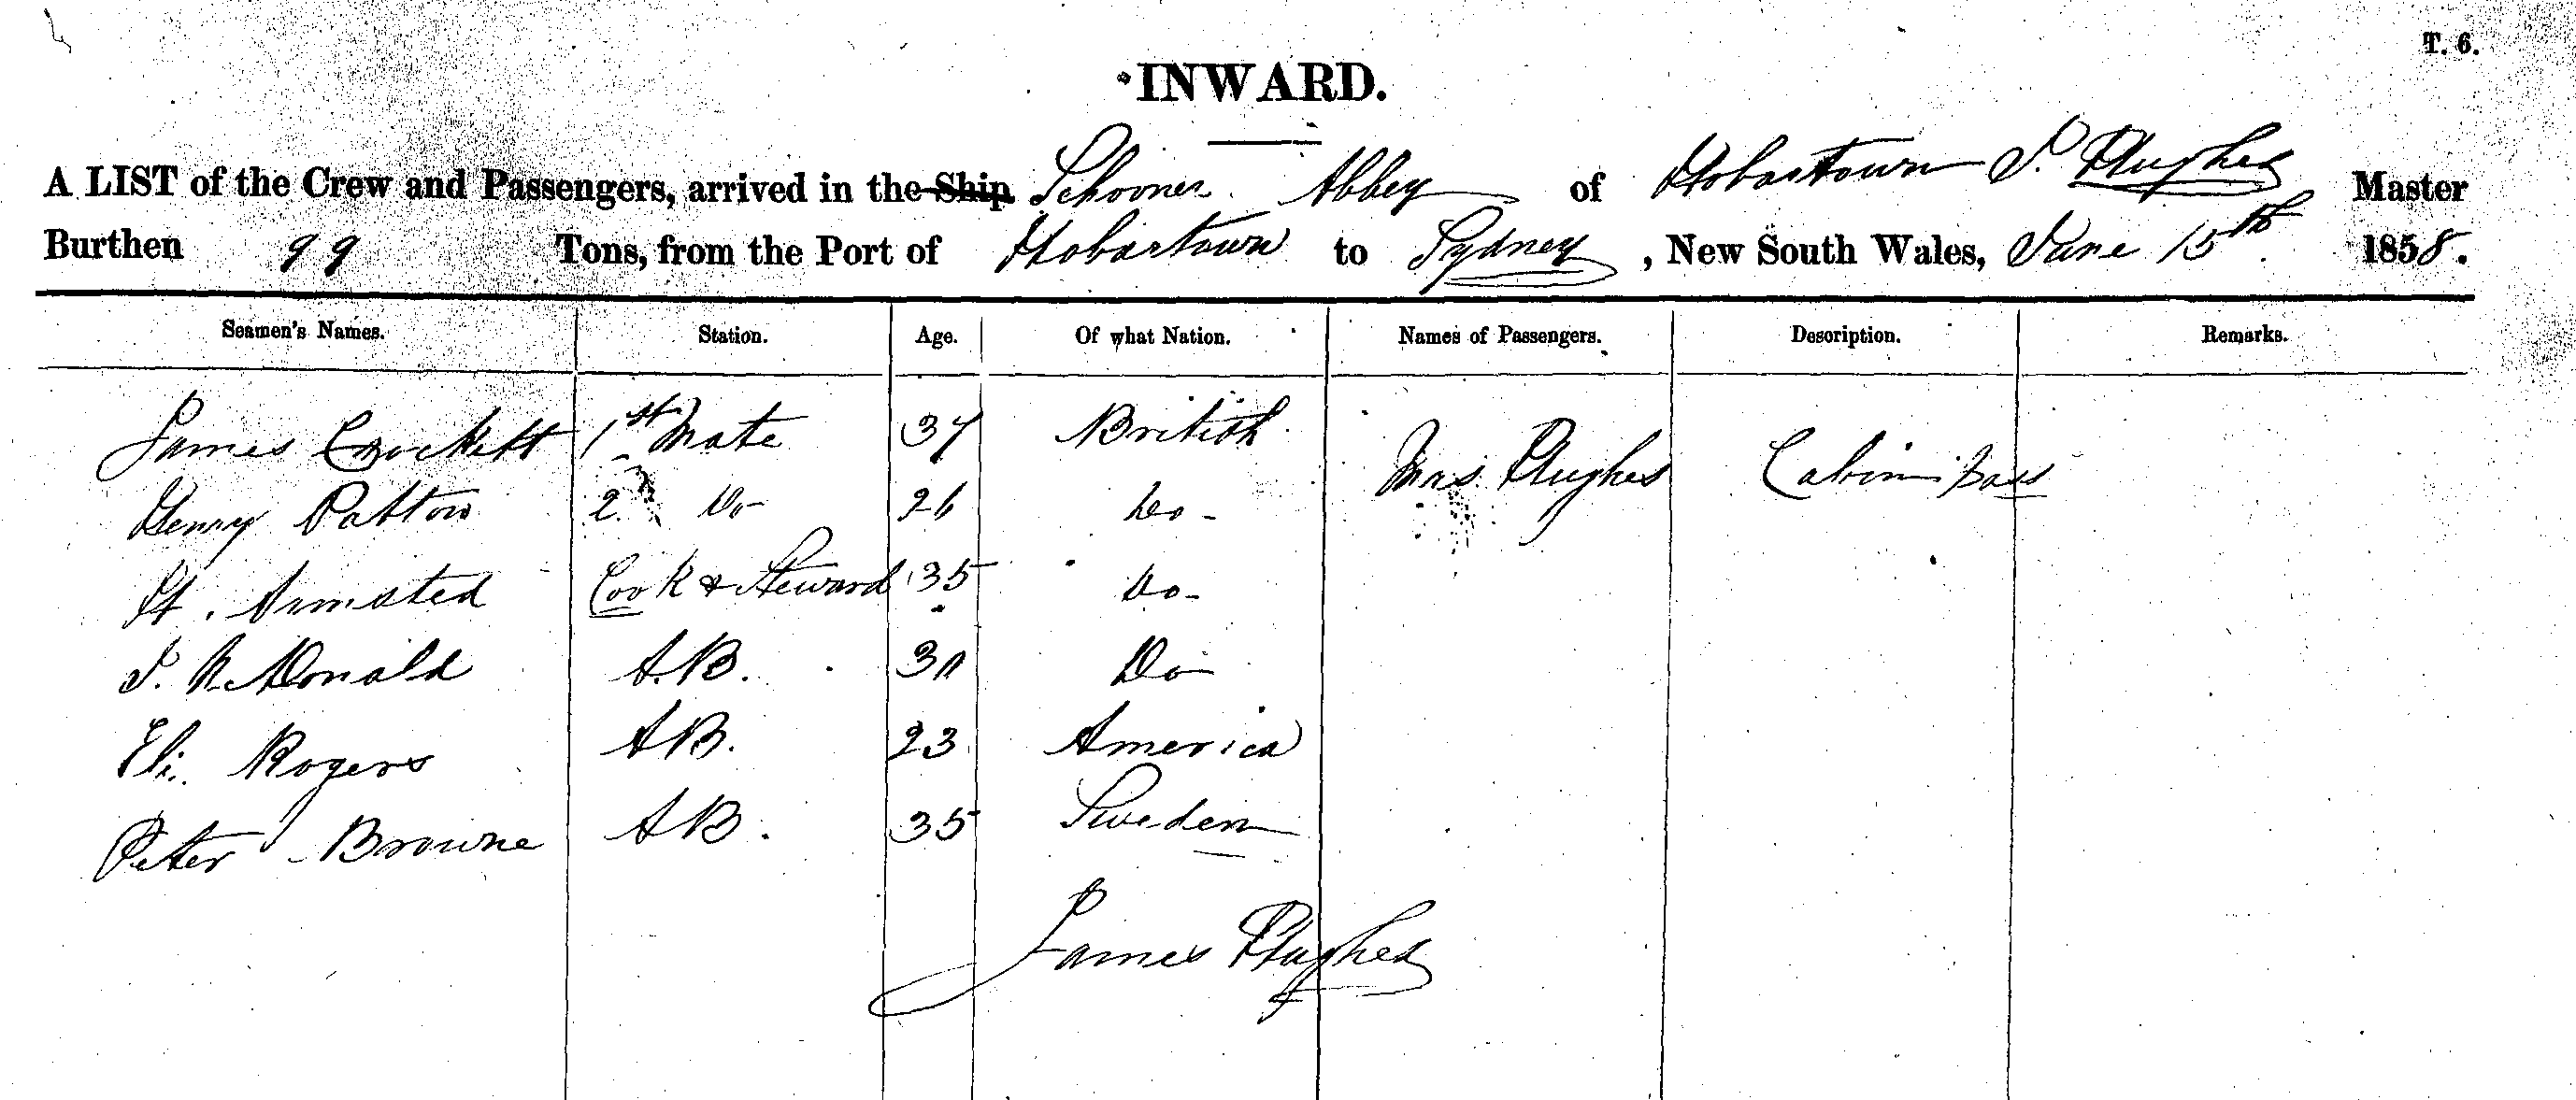 T. 6.
INWARD.
A LIST of the Crew and Passengers, arrived in the Ship Schooner Abbey of Hobartown J. Hughes Master
Burthen 99 Tons, from the Port of Hobartown to Sydney, New South Wales, June 15th 1858.
Seamen's Names. Station. Age. Of what Nation. Names of Passengers. Description. Remarks.
James Crockett 1st Mate 37 British Mrs Hughes Cabin pass
Henry Patton 2nd Do 26 Do
H. Armsted Cook & Steward 35 Do
J. McDonald A.B. Do
Eli Rogers AB. 23 America
Peter Browne AB. 35 Sweden
James Hughes